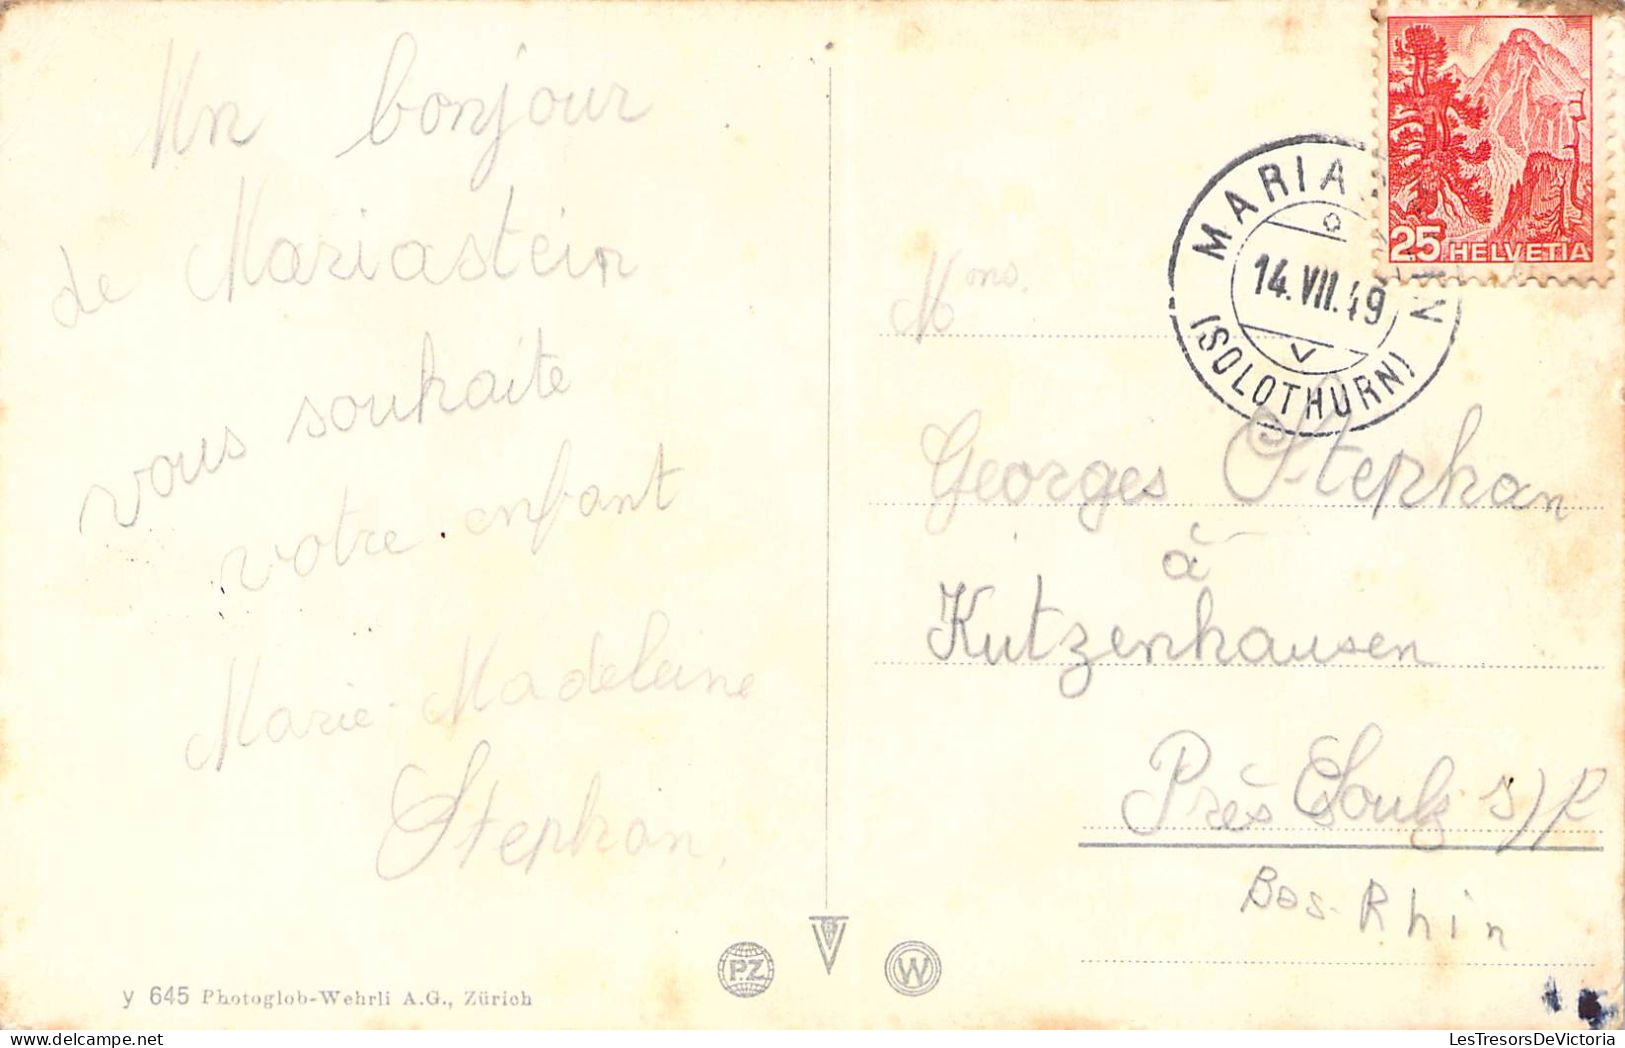 Un bonjour
de Mariastein
vous souhaite
votre enfant
Marie-Madeleine
Stephan.
y 645 Photoglob-Wehrli A.G., Zürich
P.Z
W
25 HELVETIA
MARIA IN
14.VII.49
(SOLOTHURN)
Mons.
Georges Stephan
à
Kutzenhausen
Près Soulz s/f
Bas-Rhin
LesTresorsDeVictoria